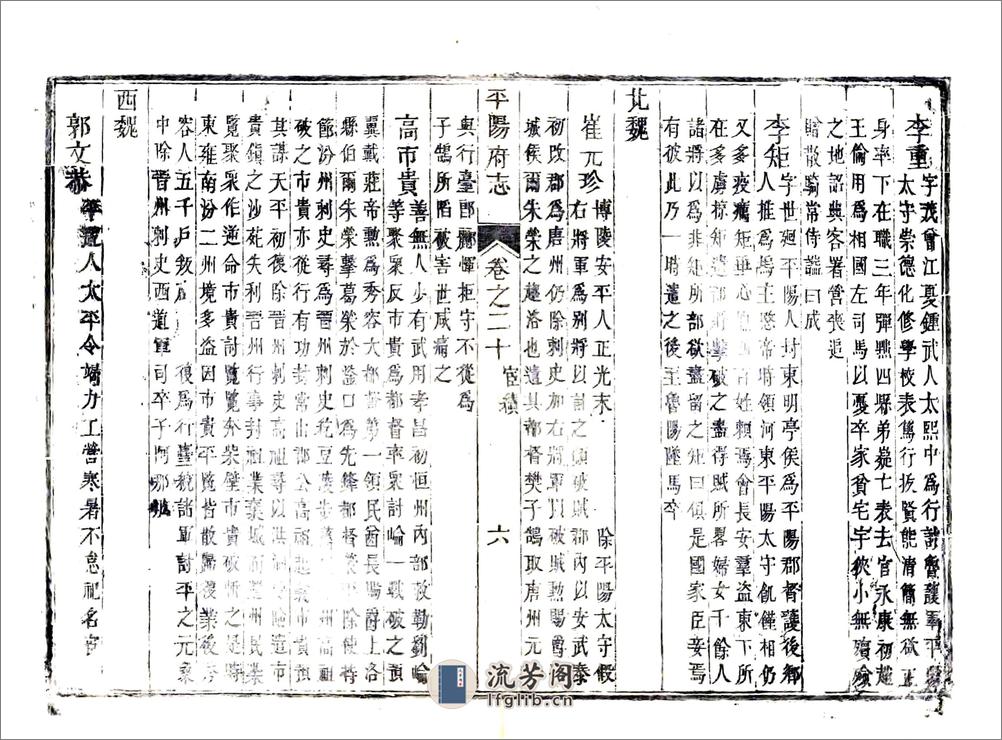 李重字茂曾江夏鍾武人太熙中為行討虜護軍平陽
太守崇德化修學校表篤行拔賢能清簡無欲正
身率下在職三年彈黜四縣弟嶷亡表去官永康初趙
王倫用為相國左司馬以憂卒家貧宅宇狹小無殯斂
之地詔典客署營喪追
贈散騎常侍謚曰成
李矩字世迴平陽人封東明亭侯為平陽郡督護後鄉
人推為塢主愍帝時領河東平陽太守飢饉相仍
又多疫癘矩垂心百姓賴焉會長安羣盜東下所
在多虜掠矩遣部擊破之盡得賊所畧婦女千餘人
諸將以非矩所部欲盡留之矩曰俱是國家臣妾焉
有彼此乃一時遣之後至魯陽墜馬卒
北魏
崔元珍博陵安平人正光末除平陽太守假
右將軍為別將以討之頻破賊郡內以安武泰
初改郡為唐州仍除刺史加右將軍以破賊勲賜爵
城侯爾朱榮之趨洛也遣其都督樊子鵠取唐州元
平陽府志 卷之二十 宦績 六
與行臺酈惲拒守不從為
子鵠所陷被害世咸痛之
高市貴善無人少有武用孝昌初恒州內部敕勒劉崘
等聚衆反市貴為都督率衆討崘一戰破之預
翼戴莊帝勲為秀容大都督第一領民酋長賜爵上洛
縣伯爾朱榮擊葛榮於滏口為先鋒都督榮平除使持
節汾州刺史尋為晉州刺史紇豆陵步
破之市貴亦從行有功封常山郡公高祖
其謀天平初復除晉州刺史高祖尋以洪
貴鎮之沙苑失利晉州行事封祖業棄城而
覽聚衆作逆命市貴討覽覽奔柴壁市貴破斬之是時
東雍南汾二州境多盜因市貴平覽皆散歸復業後秀
容人五千戶叛
後為行臺統諸軍討平之元象
中除晉州刺史西道軍司卒子阿那肱
西魏
郭文恭平遥人太平令竭力工營寒暑不怠祀名宦